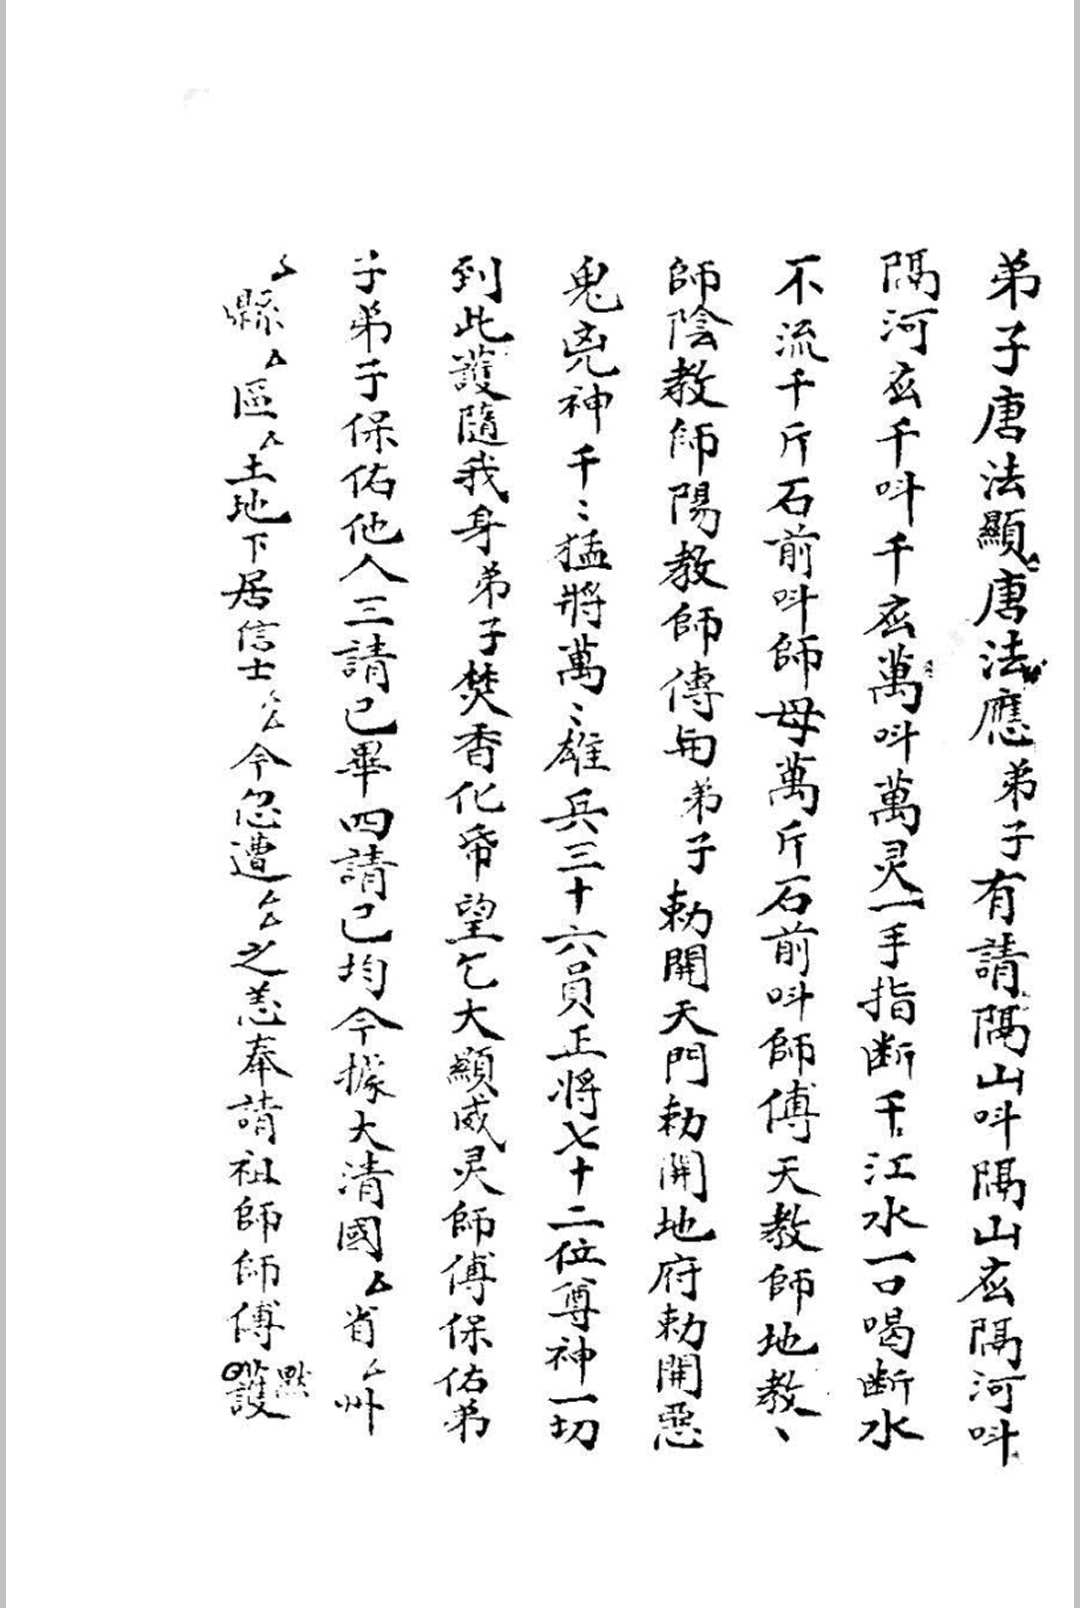 弟子唐法顯唐法應弟子有請隔山叫隔山应隔河叫
隔河应千叫千应萬叫萬灵一手指断千江水一口喝断水
不流千斤石前叫師母萬斤石前叫師傅天教師地教〻
師陰教師陽教師傅与弟子勅開天門勅開地府勅開惡
鬼兇神千〻猛將萬〻雄兵三十六員正將七十二位尊神一切
到此護隨我身弟子焚香化帋望乞大顯威灵師傅保佑弟
子弟子保佑他人三請已畢四請已均今據大清國厶省厶州
厶縣厶區厶土地下居信士厶厶今忽遭厶厶之恙奉請祖師師傅護